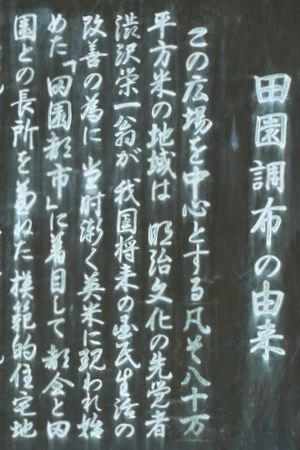 田園調布の由来
この広場を中心とする凡そ八十万
平方米の地域は 明治文化の先覚者
渋沢栄一翁が 我国将来の国民生活の
改善の為に 当时漸く英米に現われ始
めた「田園都市」に着目して 都会と田
園との長所を兼ねた 模範的住宅地